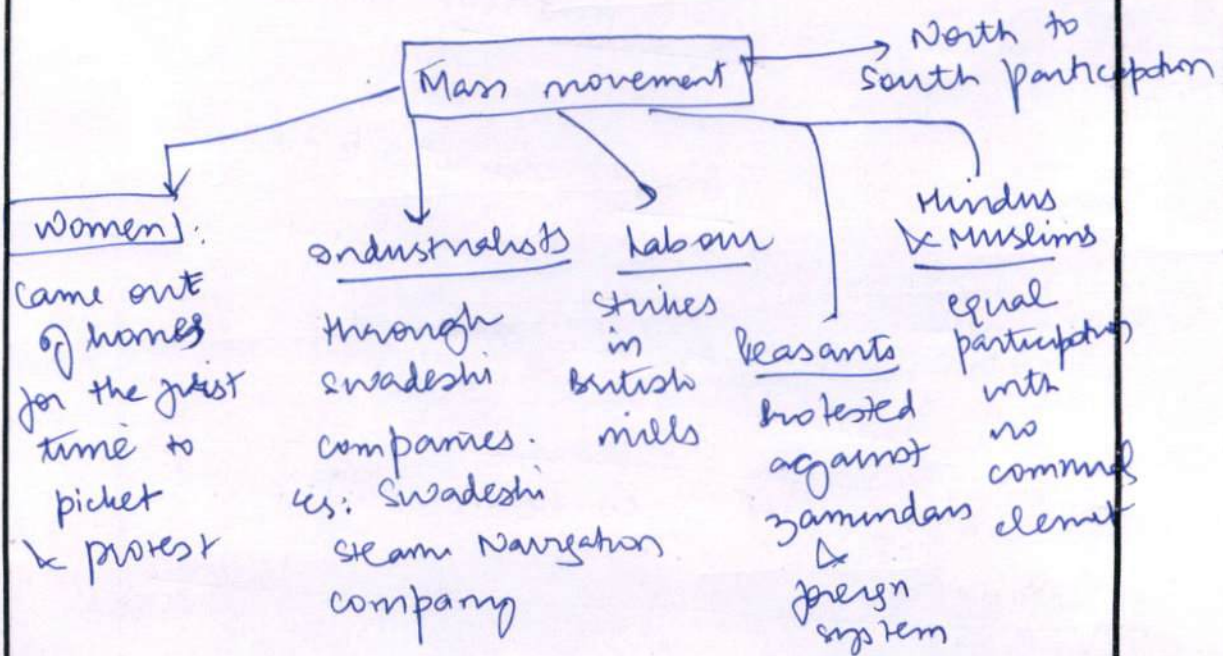 Mass movement
North to
South participation
Women:
Came out
of homes
for the first
time to
picket
& protest
Industrialists
through
swadeshi
companies.
eg: Swadeshi
Steam Navigation
company
Labour
strikes
in
British
mills
Peasants
Protested
against
zamindars
&
foreign
system
Hindus
& Muslims
equal
participation
with
no
communal
element